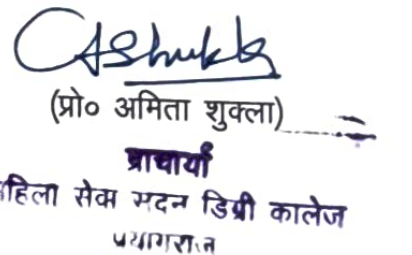 AShukla
(प्रो० अमिता शुक्ला)
प्राचार्या
हिला सेवा सदन डिग्री कालेज
प्रयागराज